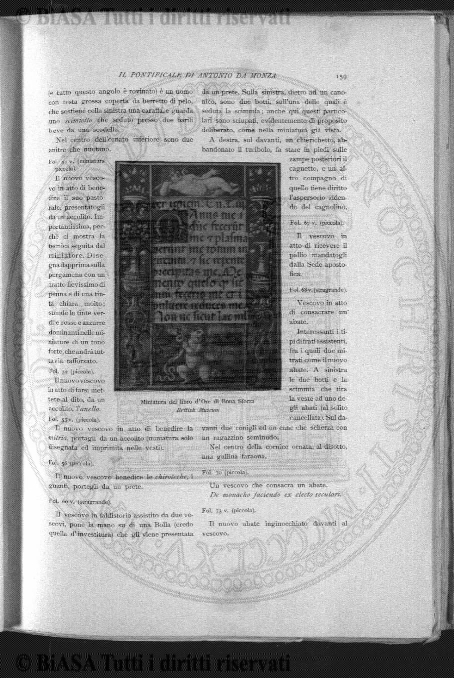 © BiASA Tutti i diritti riservati
IL PONTIFICALE DI ANTONIO DA MONZA
159
(e tutto questo angolo è rovinato) è un uomo
con testa grossa coperta da berretto di pelo,
che sostiene colla sinistra una caraffa, e guarda
uno scimiotto che seduto presso due barili
beve da una scodella.
Nel centro dell'ornato inferiore sono due
anitre che nuotano.
Fol. v. (miniatura
piccola).
Il nuovo vesco-
vo in atto di bene-
dire il suo pasto-
rale, presentatogli
da un accolito. Im-
portantissima, per-
chè ci mostra la
tecnica seguita dal
miniatore. Dise-
gna dapprima sulla
pergamena con un
tratto finissimo di
penna e di una tin-
ta chiara, molto;
stende le tinte ver-
di e rosse e azzurre
dominanti nelle mi-
niature di un tono
forte, che andrà tut-
tavia rafforzato.
Fol. 52 (piccola).
Il nuovo vescovo
in atto di farsi met-
tere al dito, da un
accolito, l'anello.
Fol. 55 v. (piccola).
Il nuovo vescovo in atto di benedire la
mitra, portagli da un accolito (miniatura solo
disegnata ed imprimita nelle vesti).
Fol. 56 (piccola).
Il nuovo vescovo benedice le chirotiche, i
guanti, portegli da un prete.
Fol. 60 v. (più grande).
Il vescovo in faldistorio assistito da due ve-
scovi, pone la mano su di una Bolla (credo
quella d'investitura) che gli viene presentata
da un prete. Sulla sinistra, dietro ad un cano-
nico, sono due botti, sull'una delle quali è
seduta la scimmia; anche qui questi partico-
lari sono sciupati, evidentemente di proposito
deliberato, come nella miniatura già vista.
A destra, sul davanti, un chierichetto, ab-
bandonato il turibolo, fa stare in piedi sulle
zampe posteriori il
cagnetto, e un al-
tro compagno di
quello tiene diritto
l'aspersorio viden-
do del cagnolino.
Fol. 65 v. (piccola).
Il vescovo in
atto di ricevere il
pallio mandatogli
dalla Sede aposto-
lica.
Fol. 68 v. (più grande).
Vescovo in atto
di consacrare un
abate.
Interessanti i ti-
pi di frati assistenti,
fra i quali due mi-
trati come il nuovo
abate. A sinistra
le due botti e la
scimmia che tira
la veste ad uno de-
gli abati (al solito
cancellata). Sul da-
vanti due conigli ed un cane che scherza con
un ragazzino seminudo.
Nel centro della cornice ornata, al disotto,
una gallina faraona.
Fol. 70 (piccola).
Un vescovo che consacra un abate.
De monacho faciendo ex electo seculari.
Fol. 73 v. (piccola).
Il nuovo abate inginocchiato davanti al
vescovo.
Miniatura del libro d'Ore di Bona Sforza
British Museum
© BiASA Tutti i diritti riservati